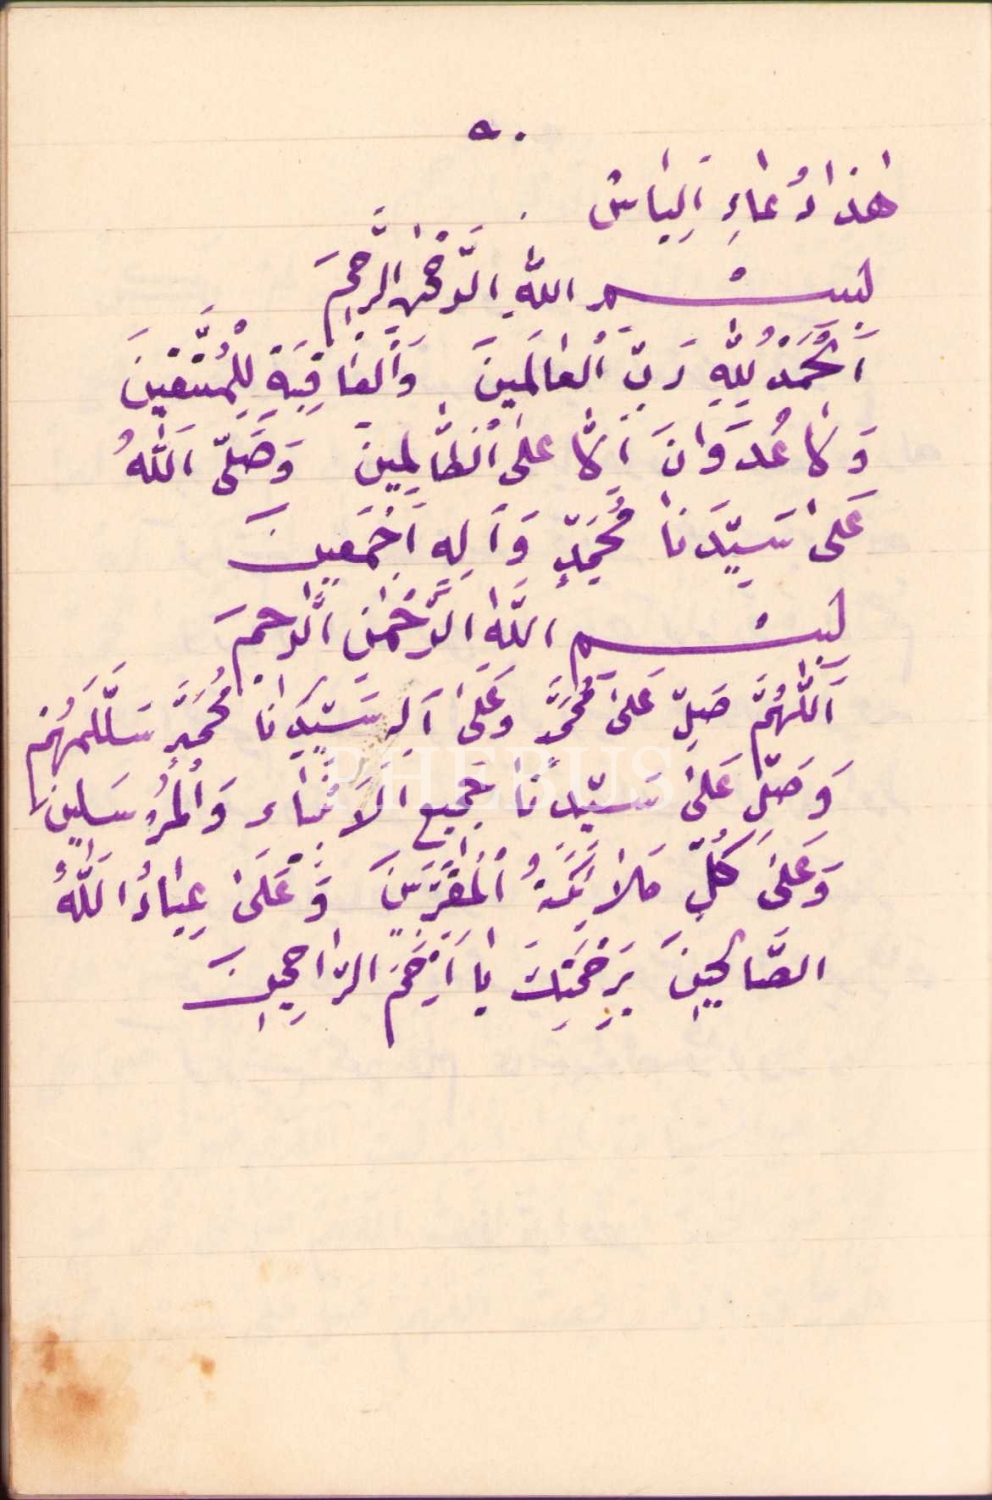 ٥٠
هٰذَا دُعَاءِ اَلِيَاسْ
بِسْمِ اللّٰهِ الرَّحْمٰنِ الرَّحِيمِ
اَلْحَمْدُ لِلّٰهِ رَبِّ الْعَالَمِينَ وَالْعَاقِبَةِ لِلْمُتَّقِينَ
وَلَا عُدَوَانَ اَلَّا عَلَى الظَّالِمِينَ وَصَلَّى اللّٰهُ
عَلَى سَيِّدَنَا مُحَمَّدٍ وَآلِهِ اَجْمَعِينَ
بِسْمِ اللّٰهِ الرَّحْمٰنِ الرَّحِيمَ
اَللّٰهُمَّ صَلِّ عَلَى مُحَمَّدٍ وَعَلَى آلِ سَيِّدِنَا مُحَمَّدٍ
وَصَلِّ عَلَى سَيِّدِنَا جَمِيعِ الْاَنْبِيَاءِ وَالْمُرْسَلِينَ
وَعَلَى كُلِّ مَلَائِكَةُ الْمُقَرَّبِينَ وَعَلَى عِبَادُ اللّٰهُ
الصَّالِحِينَ بِرَحْمَتِكَ يَا اَرْحَمَ الرَّاحِمِينَ
PHEBUS